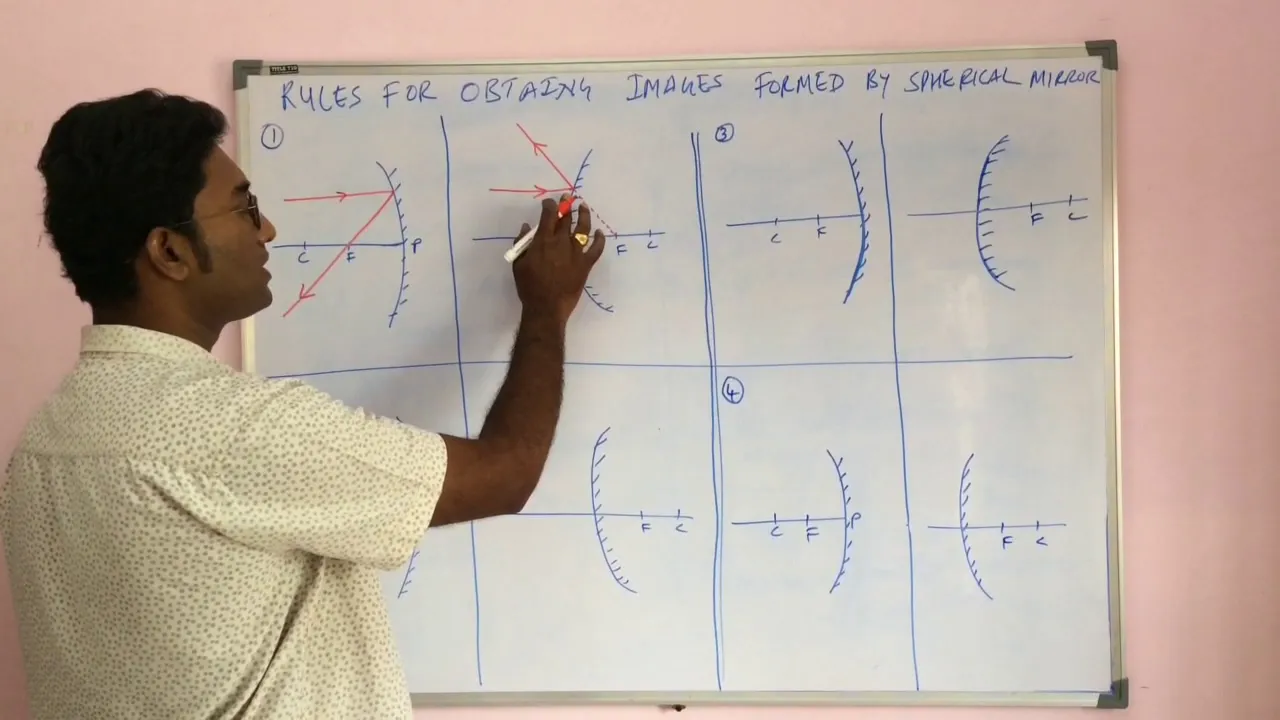 RULES FOR OBTAING IMAGES FORMED BY SPHERICAL MIRROR
①
C F P
F C
③
C F
F C
F C
④
C F P
F C